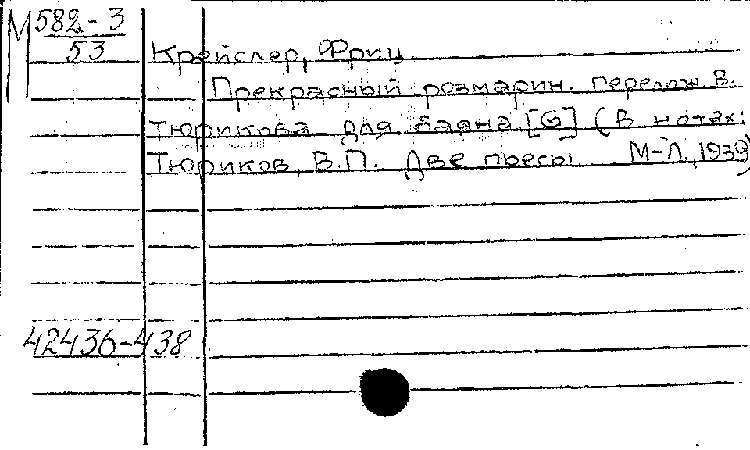 М 582-3
53
Крейслер, Фриц.
Прекрасный розмарин. перелож В.
Тюрикова для баяна [G] (В нотах:
Тюриков, В.П. Две пьесы М-Л, 1939)
42436-438